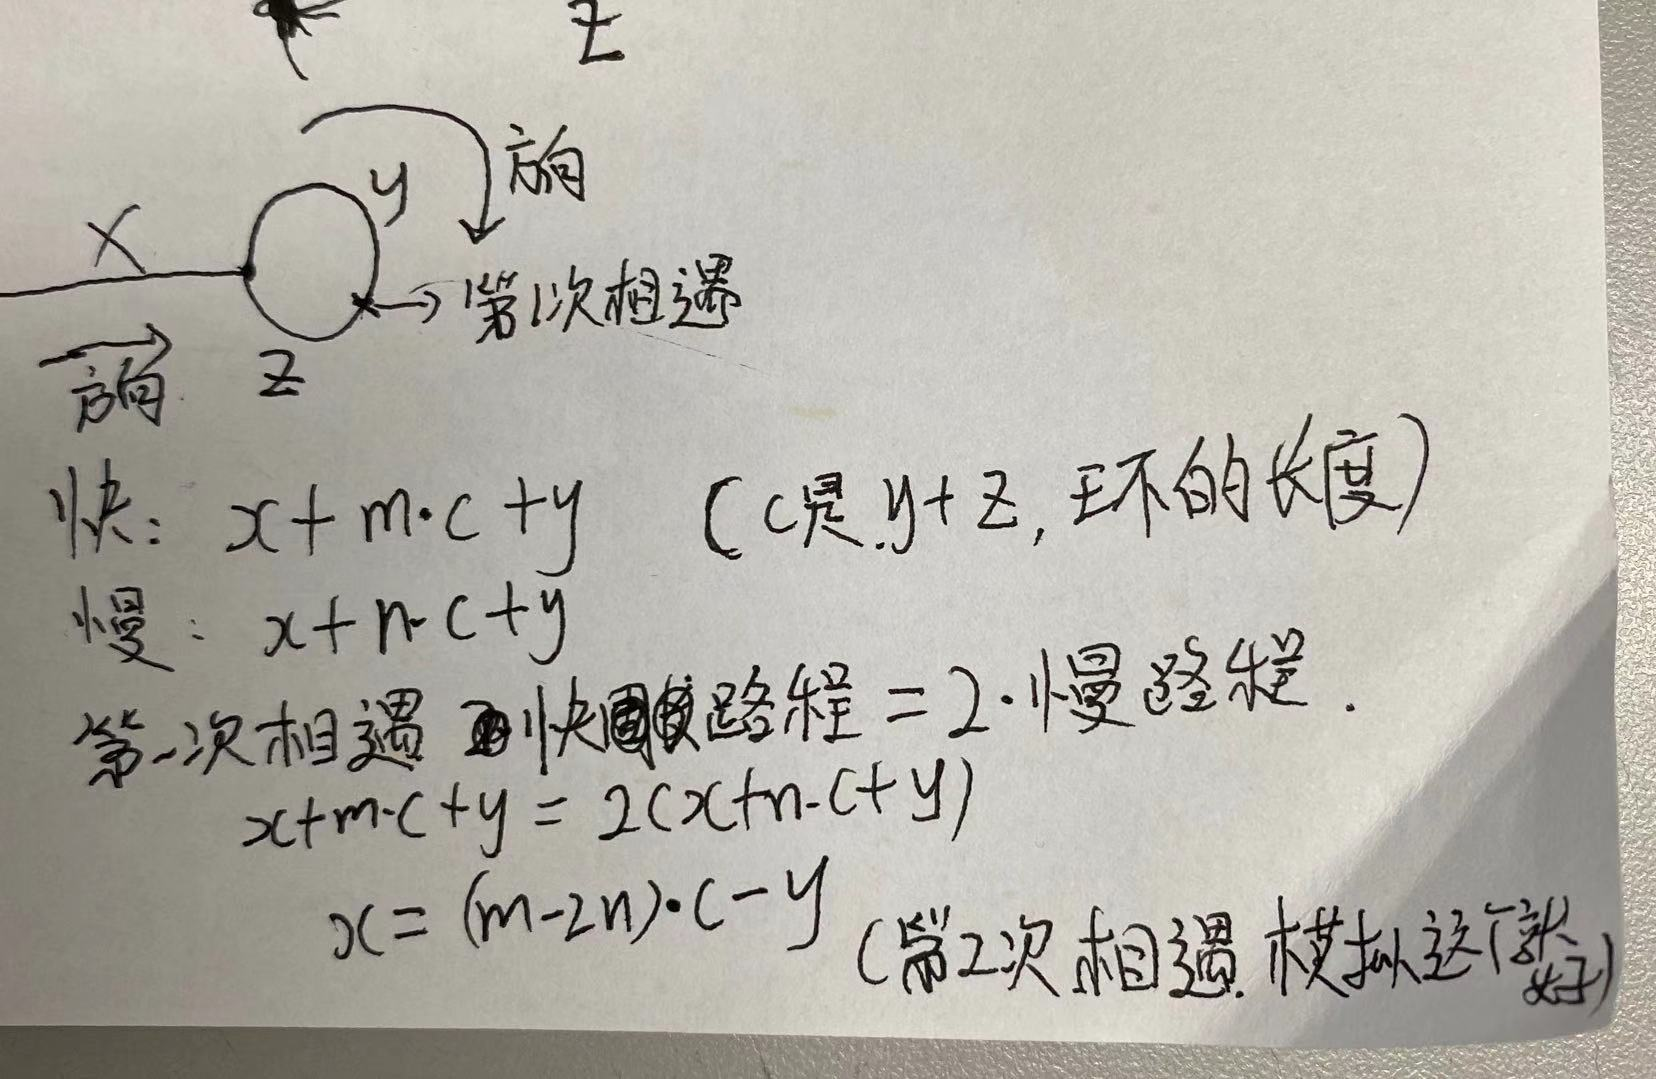 z
方向
y
x
→第1次相遇
方向
z
快: x+m·c+y (c是y+z,环的长度)
慢: x+n·c+y
第一次相遇 快路程=2·慢路程.
x+m·c+y=2(x+n·c+y)
x=(m-2n)·c-y
(第2次相遇.模拟这个就好)